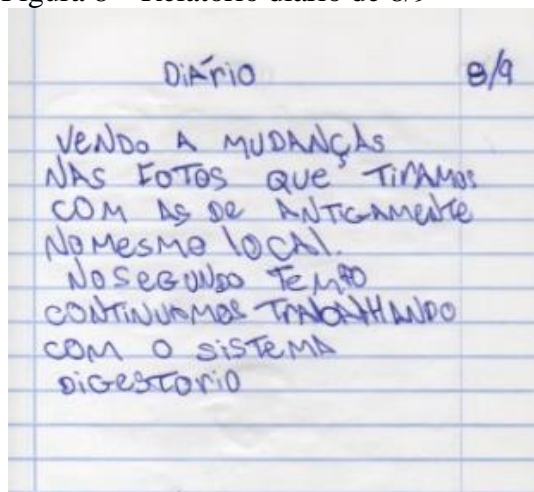 Figura 8 – Relatório diário de 8/9
DiÁrio 8/9
VENDO A MUDANÇAS
NAS FOTOS QUE TIRAMOS
COM AS DE ANTIGAMENTE
NO MESMO lOCAL.
NO SEGUNDO TEMPO
CONTINUAMOS TRABALHANDO
COM O SISTEMA
DIGESTORIO